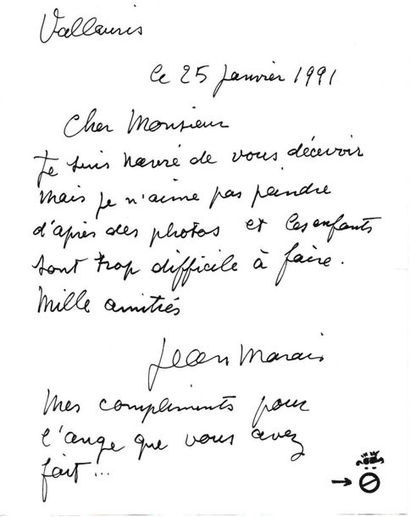 Vallauris
le 25 Janvier 1991
Cher Monsieur
Je suis navré de vous décevoir
mais je n'aime pas peindre
d'après des photos et les enfants
sont trop difficile à faire.
Mille amitiés
Jean Marais
Mes compliments pour
l'ange que vous avez
fait...